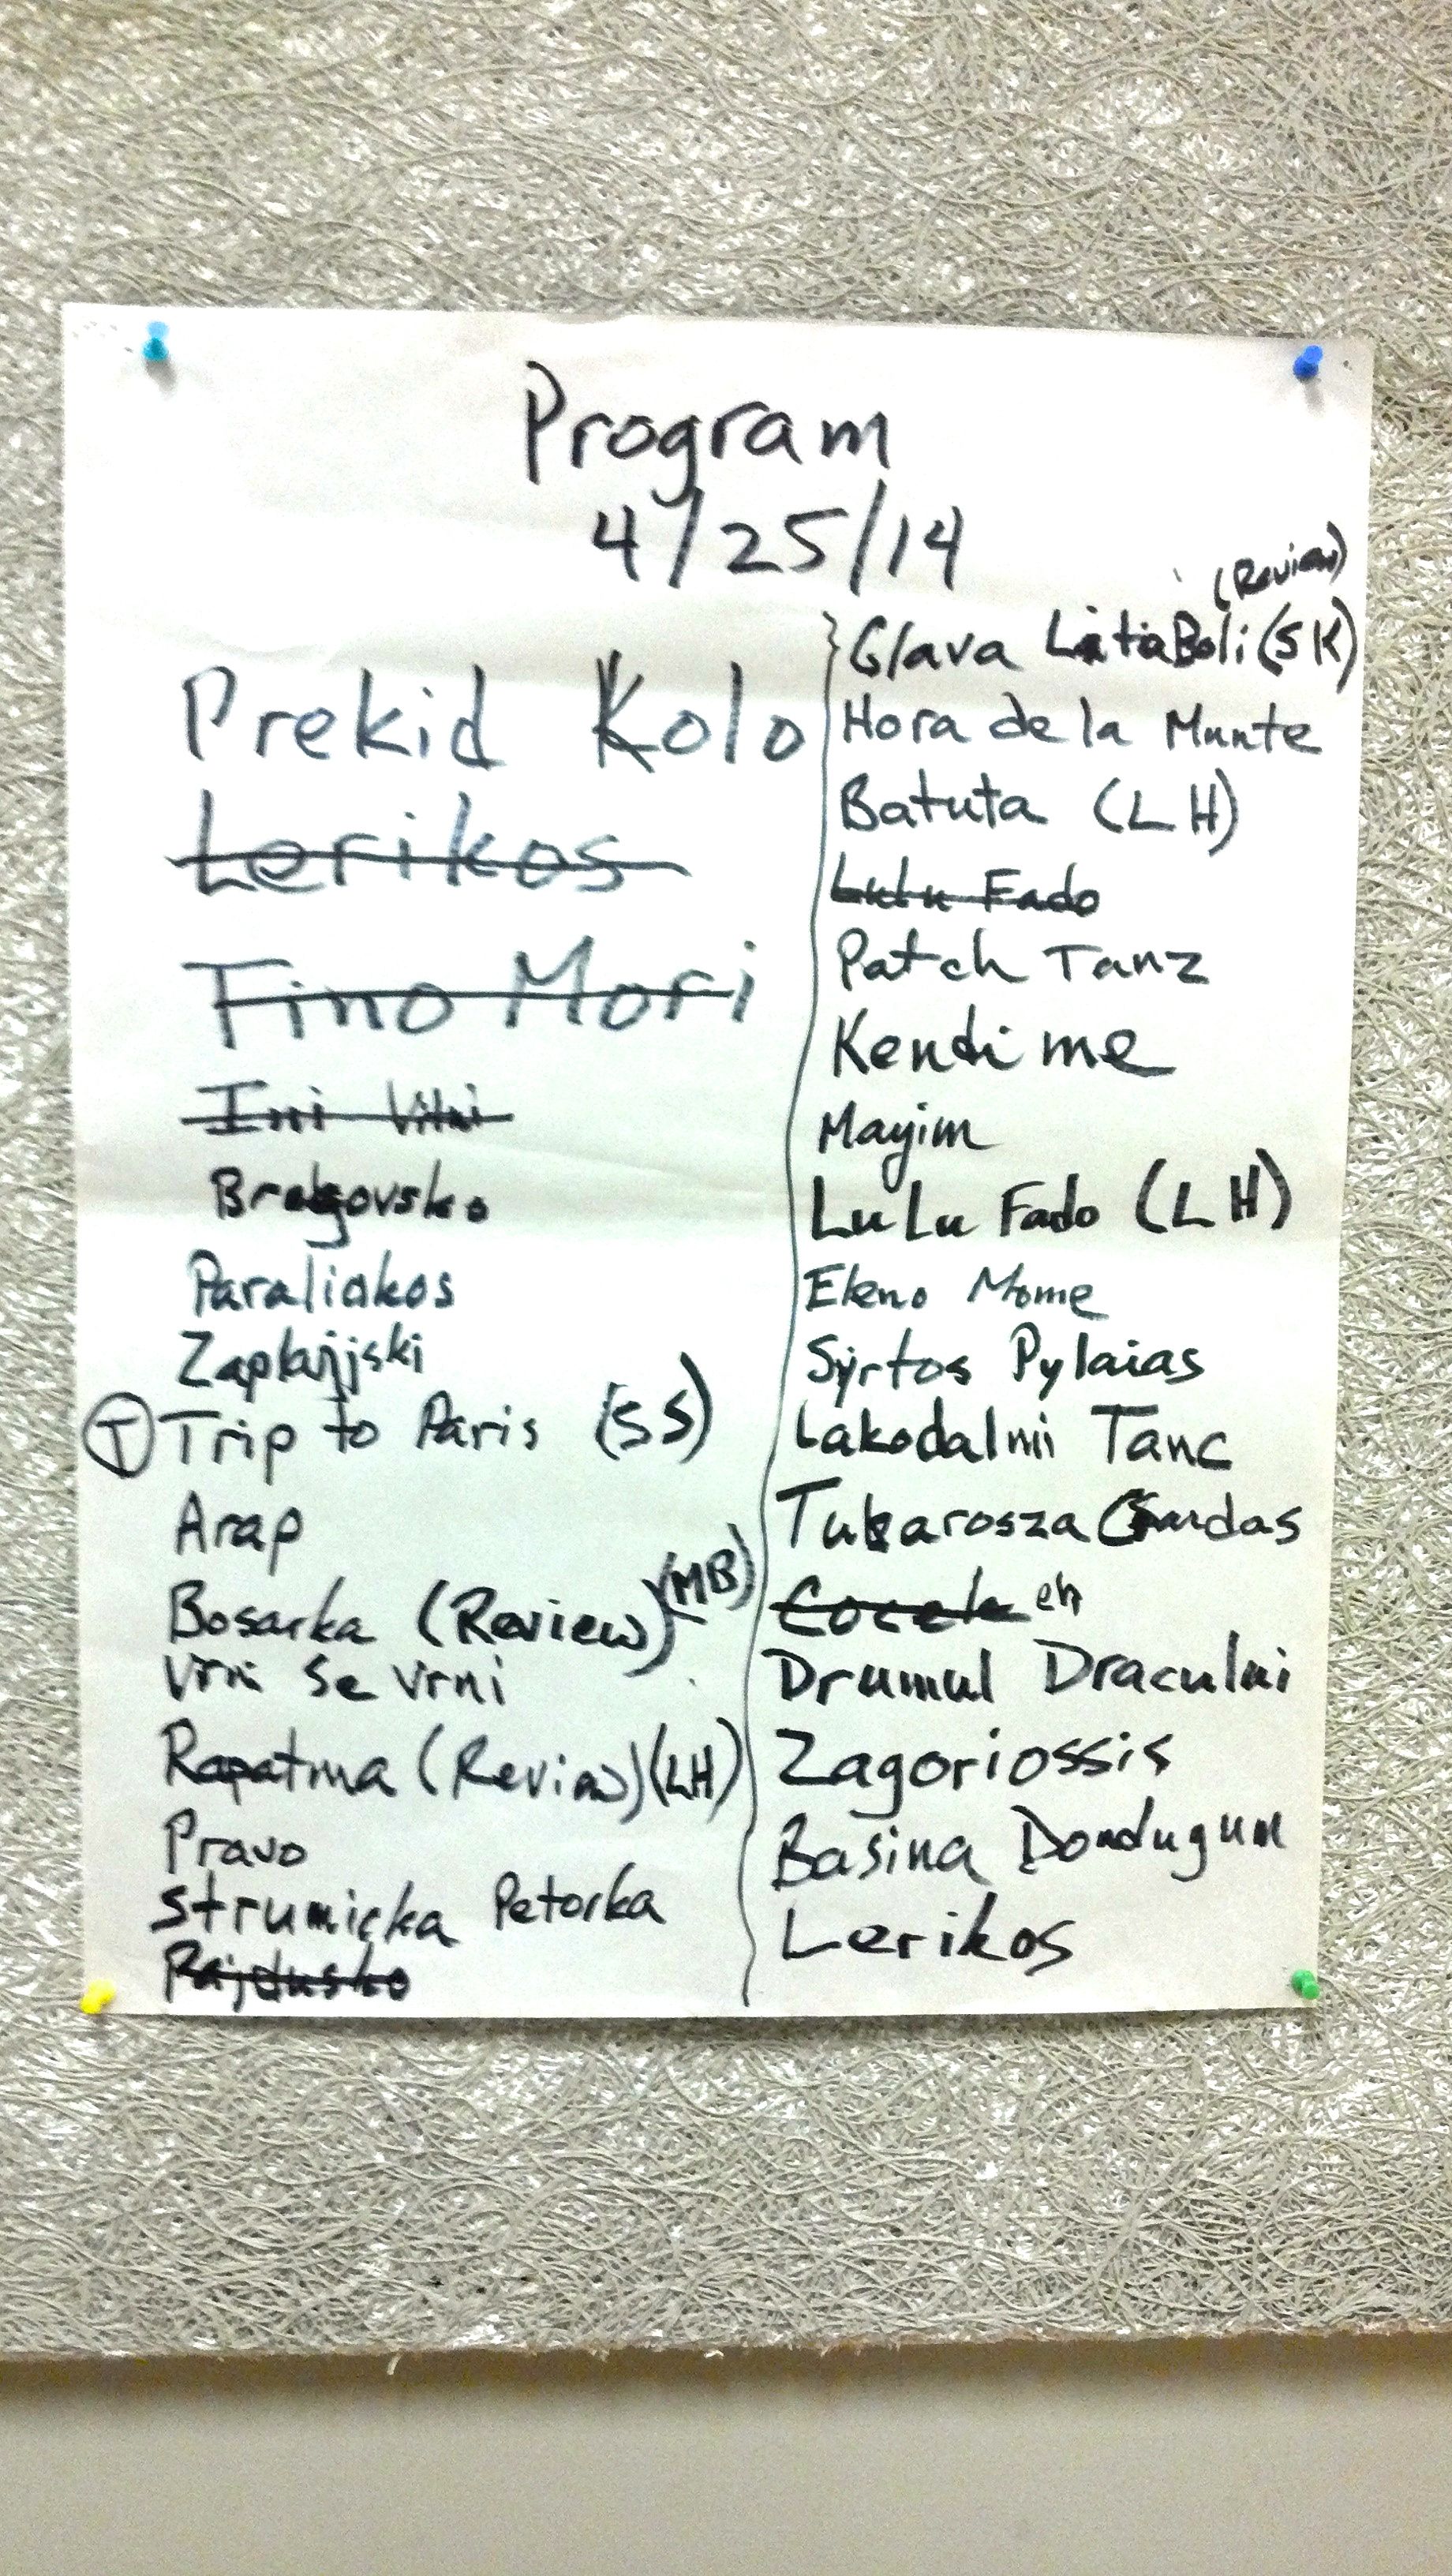 Program
4/25/14
Prekid Kolo
Lerikos
Fino Mori
Ini Vitui
Bregovsko
Paraliakos
Zaplanjski
(T) Trip to Paris (SS)
Arap
Bosarka (Review) (MB)
Vrni Se Vrni
Rapatma (Review) (LH)
Pravo
Strumicka Petorka
Rajdusko
(Review)
Glava LatiaBoli (SK)
Hora de la Munte
Batuta (LH)
Lulu Fado
Patch Tanz
Kendime
Mayim
LuLu Fado (LH)
Eleno Mome
Syrtos Pylaias
Lakodalmi Tanc
Tukarosza Csardas
Cocek eh
Drumul Dracului
Zagoriossis
Basina Dondugun
Lerikos